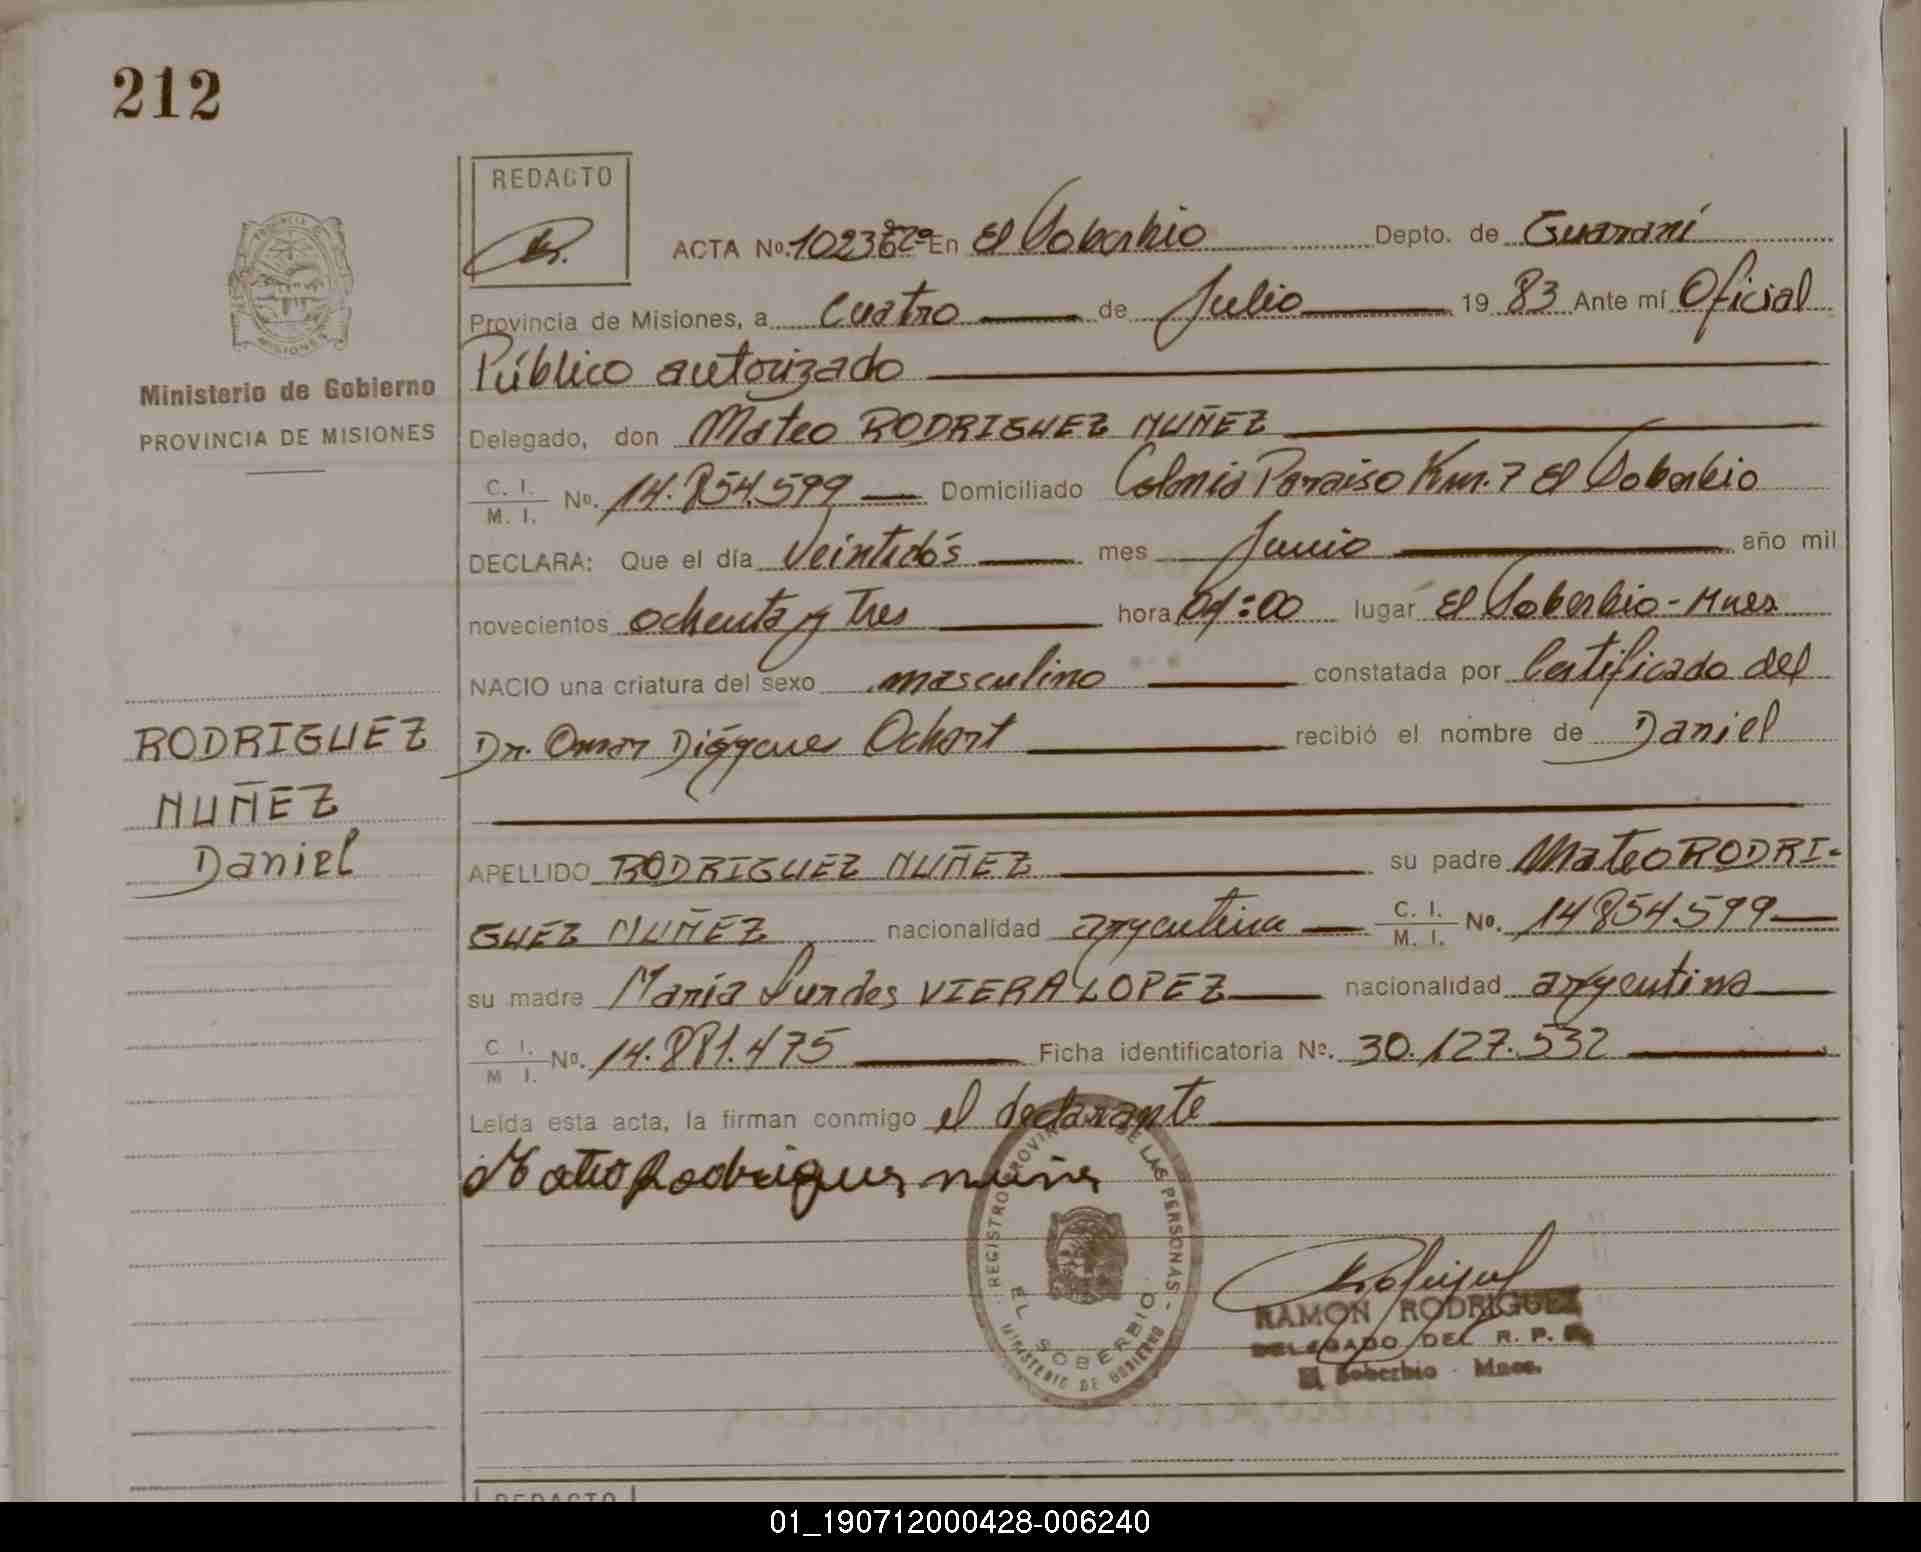 212
REDACTO
ACTA Nº. 1023 En El Soberbio Depto. de Guaraní
Provincia de Misiones, a Cuatro de Julio 19 83 Ante mí Oficial
Público autorizado
Ministerio de Gobierno
PROVINCIA DE MISIONES
Delegado, don Mateo RODRIGUEZ NUÑEZ
C. I.
M. I. Nº. 14.854.599 Domiciliado Colonia Paraiso Km. 7 El Soberbio
DECLARA: Que el día Veintidós mes Junio año mil
novecientos ochenta y Tres hora 04:00 lugar El Soberbio - Mnes
NACIO una criatura del sexo masculino constatada por Certificado del
RODRIGUEZ
NUÑEZ
Daniel
Dr. Omar Ochart recibió el nombre de Daniel
APELLIDO RODRIGUEZ NUÑEZ su padre Mateo RODRI-
GUEZ NUÑEZ nacionalidad argentina C. I.
M. I. Nº. 14854.599
su madre María Lurdes VIERA LOPEZ nacionalidad argentina
C. I.
M. I. Nº. 14.881.475 Ficha identificatoria Nº. 30.127.532
Leída esta acta, la firman conmigo el declarante
Mateo Rodriguez nuñes
REGISTRO PROVINCIAL DE LAS PERSONAS
EL SOBERBIO
MINISTERIO DE GOBIERNO
RAMON RODRIGUEZ
DELEGADO DEL R. P. P.
El Soberbio - Mnes.
REDACTO
01_190712000428-006240